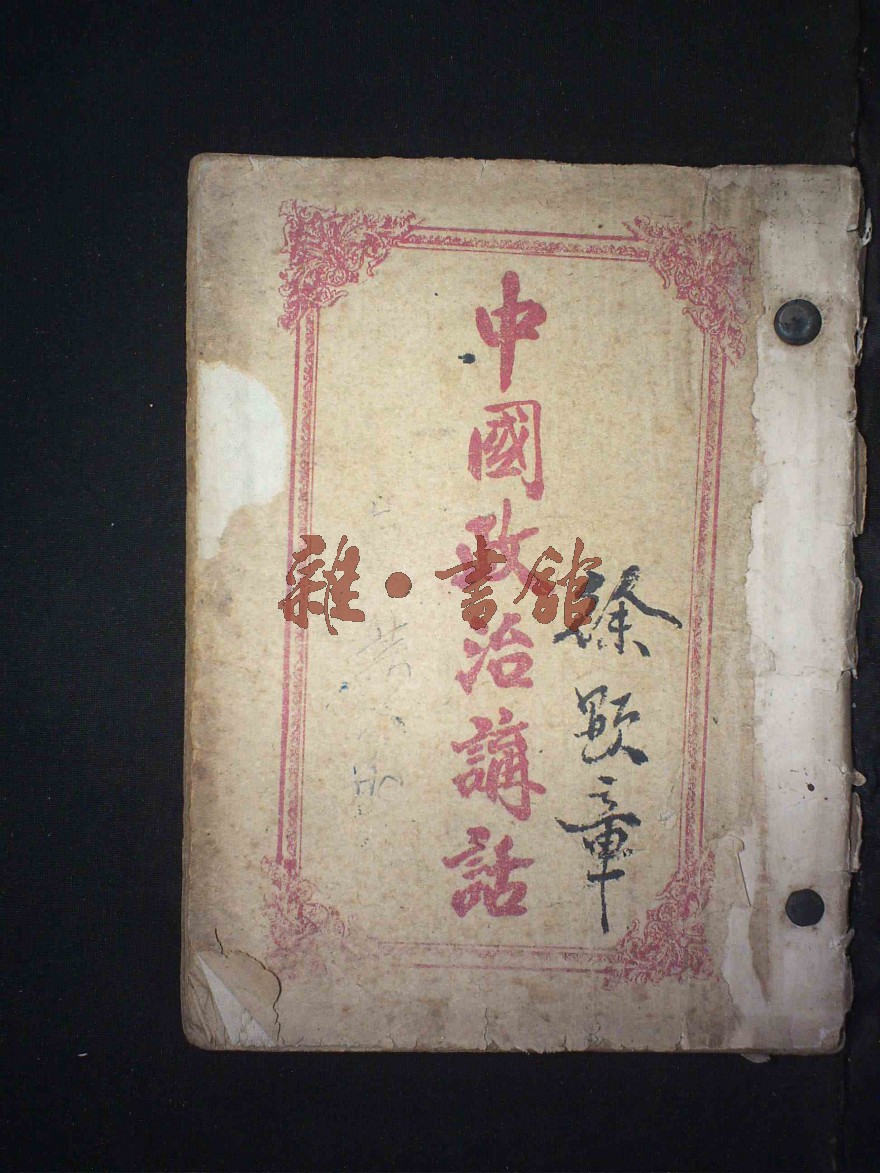 徐顯章
中國政治講話
雜·書館